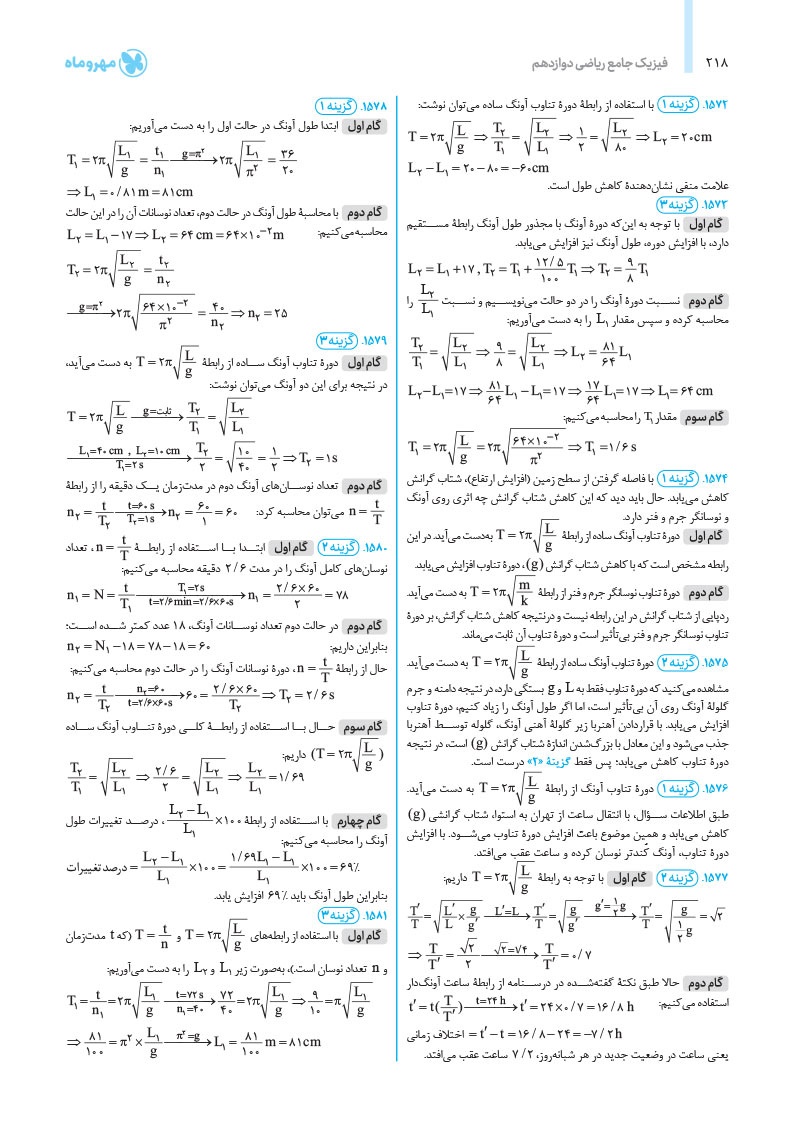 ۲۱۸
فیزیک جامع ریاضی دوازدهم
مهروماه
۱۵۷۲. گزینهٔ ۱ با استفاده از رابطهٔ دورهٔ تناوب آونگ ساده می‌توان نوشت:
T = ۲π√(L/g) ⇒ T₂/T₁ = √(L₂/L₁) ⇒ ۱/۲ = √(L₂/۸۰) ⇒ L₂ = ۲۰cm
L₂ − L₁ = ۲۰ − ۸۰ = −۶۰cm
علامت منفی نشان‌دهندهٔ کاهش طول است.
۱۵۷۳. گزینهٔ ۳
گام اول با توجه به این‌که دورهٔ آونگ با مجذور طول آونگ رابطهٔ مستقیم
دارد، با افزایش دوره، طول آونگ نیز افزایش می‌یابد.
L₂ = L₁ + ۱۷ , T₂ = T₁ + ۱۲/۵/۱۰۰ T₁ ⇒ T₂ = ۹/۸ T₁
گام دوم نسبت دورهٔ آونگ را در دو حالت می‌نویسیم و نسبت L₂/L₁ را
محاسبه کرده و سپس مقدار L₁ را به دست می‌آوریم:
T₂/T₁ = √(L₂/L₁) ⇒ ۹/۸ = √(L₂/L₁) ⇒ L₂ = ۸۱/۶۴ L₁
L₂ − L₁ = ۱۷ ⇒ ۸۱/۶۴ L₁ − L₁ = ۱۷ ⇒ ۱۷/۶۴ L₁ = ۱۷ ⇒ L₁ = ۶۴ cm
گام سوم مقدار T₁ را محاسبه می‌کنیم:
T₁ = ۲π√(L/g) = ۲π√(۶۴×۱۰⁻²/π²) ⇒ T₁ = ۱/۶ s
۱۵۷۴. گزینهٔ ۱ با فاصله گرفتن از سطح زمین (افزایش ارتفاع)، شتاب گرانش
کاهش می‌یابد. حال باید دید که این کاهش شتاب گرانش چه اثری روی آونگ
و نوسانگر جرم و فنر دارد.
گام اول دورهٔ تناوب آونگ ساده از رابطهٔ T = ۲π√(L/g) به‌دست می‌آید. در این
رابطه مشخص است که با کاهش شتاب گرانش (g)، دورهٔ تناوب افزایش می‌یابد.
گام دوم دورهٔ تناوب نوسانگر جرم و فنر از رابطهٔ T = ۲π√(m/k) به دست می‌آید.
ردپایی از شتاب گرانش در این رابطه نیست و درنتیجه کاهش شتاب گرانش، بر دورهٔ
تناوب نوسانگر جرم و فنر بی‌تأثیر است و دورهٔ تناوب آن ثابت می‌ماند.
۱۵۷۵. گزینهٔ ۲ دورهٔ تناوب آونگ ساده از رابطهٔ T = ۲π√(L/g) به دست می‌آید.
مشاهده می‌کنید که دورهٔ تناوب فقط به L و g بستگی دارد، در نتیجه دامنه و جرم
گلولهٔ آونگ روی آن بی‌تأثیر است، اما اگر طول آونگ را زیاد کنیم، دورهٔ تناوب
افزایش می‌یابد. با قراردادن آهنربا زیر گلولهٔ آهنی آونگ، گلوله توسط آهنربا
جذب می‌شود و این معادل با بزرگ‌شدن اندازهٔ شتاب گرانش (g) است، در نتیجه
دورهٔ تناوب کاهش می‌یابد؛ پس فقط گزینهٔ «۲» درست است.
۱۵۷۶. گزینهٔ ۱ دورهٔ تناوب آونگ از رابطهٔ T = ۲π√(L/g) به دست می‌آید.
طبق اطلاعات سؤال، با انتقال ساعت از تهران به استوا، شتاب گرانشی (g)
کاهش می‌یابد و همین موضوع باعث افزایش دورهٔ تناوب می‌شود. با افزایش
دورهٔ تناوب، آونگ کُندتر نوسان کرده و ساعت عقب می‌افتد.
۱۵۷۷. گزینهٔ ۲ گام اول با توجه به رابطهٔ T = ۲π√(L/g) داریم:
T′/T = √(L′/L × g/g′) —L′=L→ T′/T = √(g/g′) —g′=۱/۲g→ T′/T = √(g/(۱/۲ g)) = √۲
⇒ T/T′ = √۲/۲ —√۲=۱/۴→ T/T′ = ۰/۷
گام دوم حالا طبق نکتهٔ گفته‌شده در درسنامه از رابطهٔ ساعت آونگ‌دار
استفاده می‌کنیم: t′ = t(T/T′) —t=۲۴ h→ t′ = ۲۴×۰/۷ = ۱۶/۸ h
اختلاف زمانی = t′ − t = ۱۶/۸ − ۲۴ = −۷/۲ h
یعنی ساعت در وضعیت جدید در هر شبانه‌روز، ۷/۲ ساعت عقب می‌افتد.
۱۵۷۸. گزینهٔ ۱
گام اول ابتدا طول آونگ در حالت اول را به دست می‌آوریم:
T₁ = ۲π√(L₁/g) = t₁/n₁ —g=π²→ ۲π√(L₁/π²) = ۳۶/۲۰
⇒ L₁ = ۰/۸۱m = ۸۱cm
گام دوم با محاسبهٔ طول آونگ در حالت دوم، تعداد نوسانات آن را در این حالت
محاسبه می‌کنیم: L₂ = L₁ − ۱۷ ⇒ L₂ = ۶۴ cm = ۶۴×۱۰⁻² m
T₂ = ۲π√(L₂/g) = t₂/n₂
—g=π²→ ۲π√(۶۴×۱۰⁻²/π²) = ۴۰/n₂ ⇒ n₂ = ۲۵
۱۵۷۹. گزینهٔ ۳
گام اول دورهٔ تناوب آونگ ساده از رابطهٔ T = ۲π√(L/g) به دست می‌آید،
در نتیجه برای این دو آونگ می‌توان نوشت:
T = ۲π√(L/g) —ثابت=g→ T₂/T₁ = √(L₂/L₁)
—L₁=۴۰ cm , L₂=۱۰ cm / T₁=۲s→ T₂/۲ = √(۱۰/۴۰) = ۱/۲ ⇒ T₂ = ۱s
گام دوم تعداد نوسان‌های آونگ دوم در مدت‌زمان یک دقیقه را از رابطهٔ
n = t/T می‌توان محاسبه کرد: n₂ = t/T₂ —t=۶۰ s / T₂=۱s→ n₂ = ۶۰/۱ = ۶۰
۱۵۸۰. گزینهٔ ۲ گام اول ابتدا با استفاده از رابطهٔ n = t/T، تعداد
نوسان‌های کامل آونگ را در مدت ۲/۶ دقیقه محاسبه می‌کنیم:
n₁ = N = t/T₁ —T₁=۲s / t=۲/۶min=۲/۶×۶۰s→ n₁ = ۲/۶×۶۰/۲ = ۷۸
گام دوم در حالت دوم تعداد نوسانات آونگ، ۱۸ عدد کمتر شده است؛
بنابراین داریم: n₂ = N₁ − ۱۸ = ۷۸ − ۱۸ = ۶۰
حال از رابطهٔ n = t/T، دورهٔ نوسانات آونگ را در حالت دوم محاسبه می‌کنیم:
n₂ = t/T₂ —n₂=۶۰ / t=۲/۶×۶۰s→ ۶۰ = ۲/۶×۶۰/T₂ ⇒ T₂ = ۲/۶ s
گام سوم حال با استفاده از رابطهٔ کلی دورهٔ تناوب آونگ ساده
(T = ۲π√(L/g)) داریم:
T₂/T₁ = √(L₂/L₁) ⇒ ۲/۶/۲ = √(L₂/L₁) ⇒ L₂/L₁ = ۱/۶۹
گام چهارم با استفاده از رابطهٔ (L₂ − L₁)/L₁ ×۱۰۰، درصد تغییرات طول
آونگ را محاسبه می‌کنیم:
درصد تغییرات = (L₂ − L₁)/L₁ ×۱۰۰ = (۱/۶۹L₁ − L₁)/L₁ ×۱۰۰ = ۶۹٪
بنابراین طول آونگ باید ۶۹٪ افزایش یابد.
۱۵۸۱. گزینهٔ ۳
گام اول با استفاده از رابطه‌های T = ۲π√(L/g) و T = t/n (که t مدت‌زمان
و n تعداد نوسان است.)، به‌صورت زیر L₁ و L₂ را به دست می‌آوریم:
T₁ = t/n₁ = ۲π√(L₁/g) —t=۷۲ s / n₁=۴۰→ ۷۲/۴۰ = ۲π√(L₁/g) ⇒ ۹/۱۰ = π√(L₁/g)
⇒ ۸۱/۱۰۰ = π² × L₁/g —π²=g→ L₁ = ۸۱/۱۰۰ m = ۸۱cm